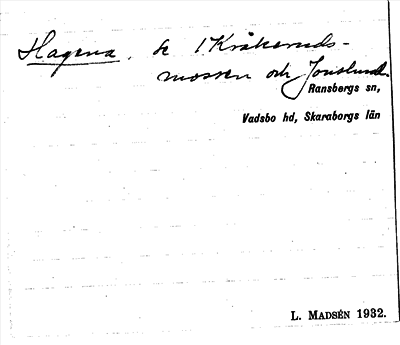 Hagena, se 1. Kråkeruds-
mossen och Jonslund.
Ransbergs sn,
Vadsbo hd, Skaraborgs län
L. MADSÉN 1932.